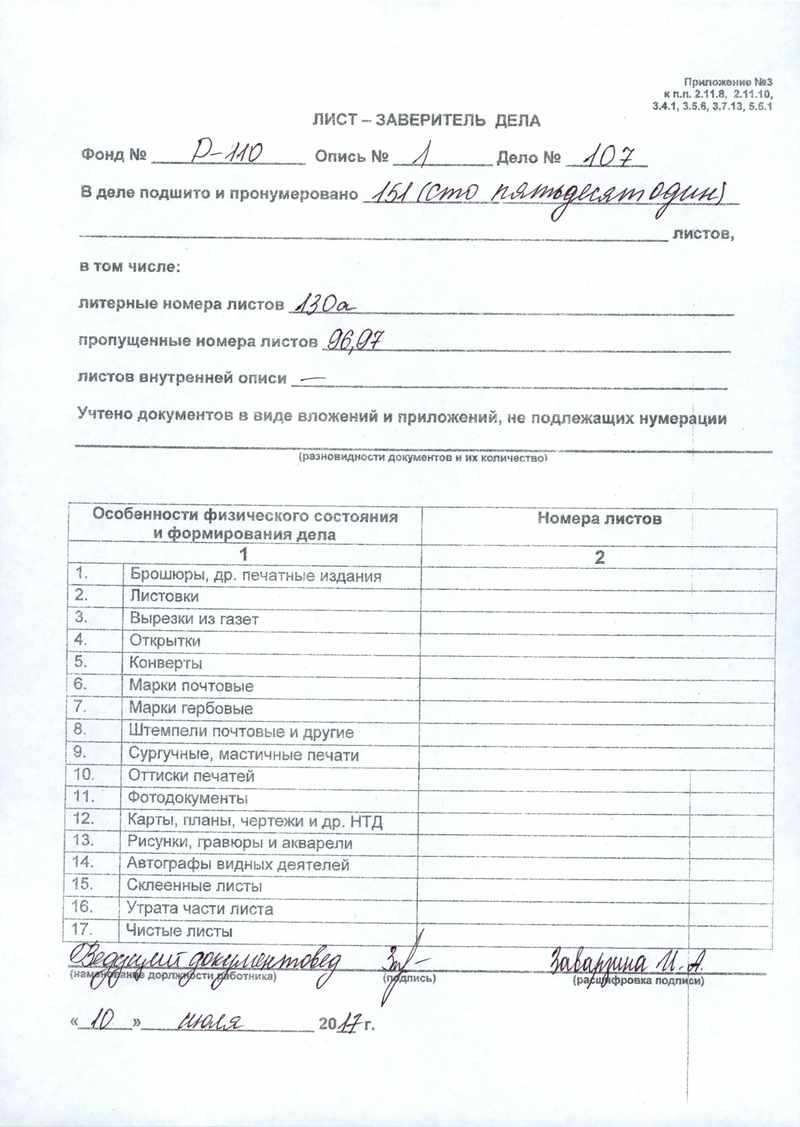 Приложение №3
к п.п. 2.11.8, 2.11.10,
3.4.1, 3.5.6, 3.7.13, 5.5.1
ЛИСТ – ЗАВЕРИТЕЛЬ ДЕЛА
Фонд № Р-110 Опись № 1 Дело № 107
В деле подшито и пронумеровано 151 (сто пятьдесят один)
листов,
в том числе:
литерные номера листов 130а
пропущенные номера листов 96,97
листов внутренней описи —
Учтено документов в виде вложений и приложений, не подлежащих нумерации
(разновидности документов и их количество)
Особенности физического состояния Номера листов
и формирования дела
1 2
1. Брошюры, др. печатные издания
2. Листовки
3. Вырезки из газет
4. Открытки
5. Конверты
6. Марки почтовые
7. Марки гербовые
8. Штемпели почтовые и другие
9. Сургучные, мастичные печати
10. Оттиски печатей
11. Фотодокументы
12. Карты, планы, чертежи и др. НТД
13. Рисунки, гравюры и акварели
14. Автографы видных деятелей
15. Склеенные листы
16. Утрата части листа
17. Чистые листы
Ведущий документовед Заварзина И.А.
(наименование дорлжности работника) (подпись) (расшифровка подписи)
«10» июля 2017 г.